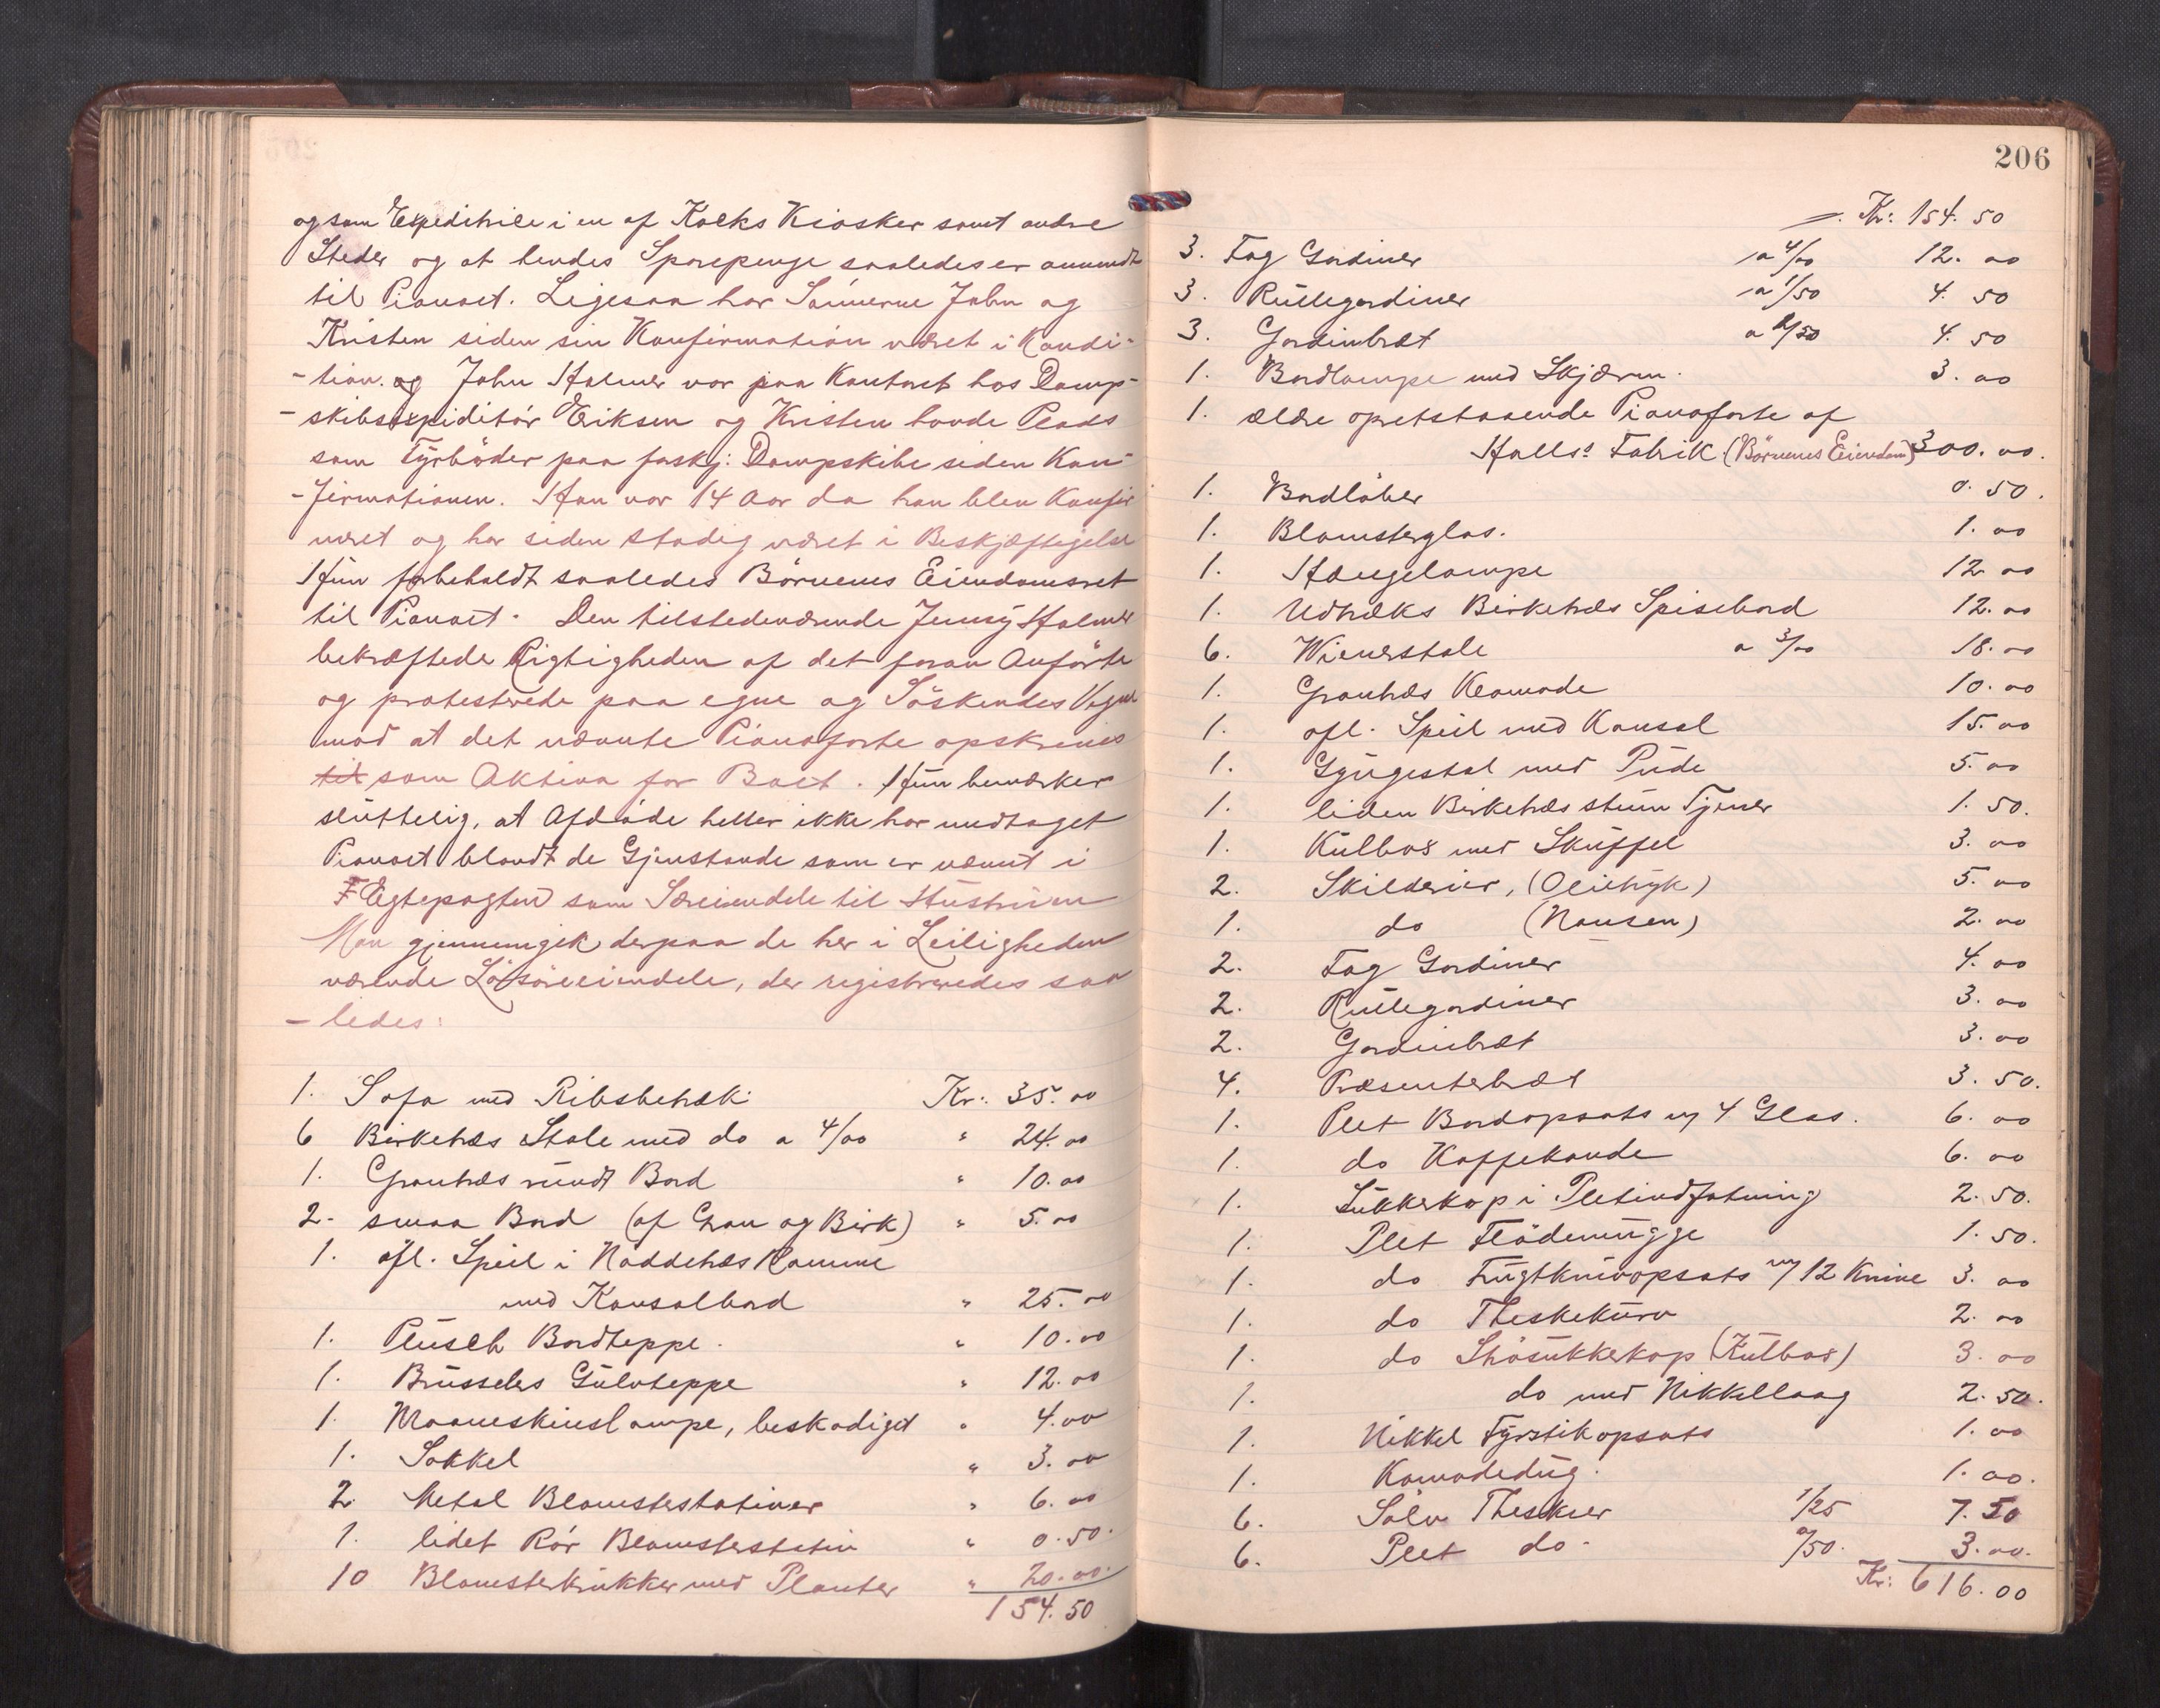 og som Expeditrice i en af Kolks Kiosker samt andre
Steder og at hendes Sparepenge saaledes er anvendt
til Pianoet. Ligesaa har Sönnerne John og
Kristen siden sin Konfirmation været i Kondi-
-tion. og John Holmer var paa Kontoret hos Damp-
-skibsexpiditör Eriksen og Kristen havde Plads
som Fyrböder paa forskj: Dampskibe siden Kon-
-firmationen. Han var 14 Aar da han blev Konfir
meret og har siden stadig været i Beskjæftigelse
Hun forbeholdt saaledes Börnenes Eiendomsret
til Pianoet. Den tilstedeværende Jenny Holmer
bekræftede Rigtigheden af det foran Anförte
og protesterede paa egne og Söskendes Vegne
mod at det nævnte Pianoforte opskrives
til som Aktiva for Boet. Hun bemærker
sluttelig, at Afdöde heller ikke har medtaget
Pianoet blandt de Gjenstande som er nævnt i
Ægtepagten som Særeiendele til Hustruen
Man gjennemgik derpaa de her i Leiligheden
værende Lösöreeiendele, der registreredes saa
-ledes:
1. Sofa med Ribsbetræk Kr: 35.00
6 Birketræs Stole med do a 4/00 " 24.00
1. Grantræs rundt Bord " 10.00
2. smaa Bord (af Gran og Birk) " 5.00
1. afl. Speil i Nøddetræs Ramme
med Konsolbord " 25.00
1. Plusch Bordteppe. " 10.00
1. Brüsselers Gulvteppe " 12.00
1. Maaneskinslampe, beskadiget " 4.00
1. Sokkel " 3.00
2. Metal Blomsterstativer " 6.00
1. lidet Rör Blomsterstativ " 0.50.
10 Blomsterkrukker med Planter " 20.00.
154.50
206
Kr: 154.50
3. Fag Gardiner a 4/00 12.00
3. Rullegardiner a 1/50 4.50
3. Gardinbræt a 1/50 4.50
1. Bordlampe med Skjærm. 3.00
1. ældre opretstaaende Pianoforte af
Halls' Fabrik (Börnenes Eiendom) 300.00.
1. Bordlöber 0.50.
1. Blomsterglas. 1.00
1. Hængelampe 12.00
1. Udtræks Birketræs Spisebord 12.00
6. Wienerstole a 3/00 18.00
1. Grantræs Komode 10.00
1. afl. Speil med Konsol 15.00
1. Gyngestol med Pude 5.00
1. liden Birketræs stum Tjener 1.50.
1. Kulbox med Skuffel 3.00
2. Skilderier, (Olietryk) 5.00
1. do (Nansen) 2.00
2. Fag Gardiner 4.00
2. Rullegardiner 3.00
2. Gardinbræt 3.00
4. Præsenterbræt 3.50.
1. Plet Bordopsats m/ 4 Glas. 6.00
1. do Kaffekande 6.00
1. Sukkerkop i Pletindfatning 2.50.
1. Plet Flödemugge 1.50.
1. do Frugtknivopsats m/ 12 Knive 3.00
1. do Theskekurv 2.00
1. do Strösukkerkop (Kulbox) 3.00
1. do med Nikkellaag 2.50.
1. Nikkel Fyrstikopsats 1.00
1. Komodedug. 1.00.
6. Sölv Theskeer 1/25 7.50
6. Plet do. 0/50. 3.00.
Kr: 616.00